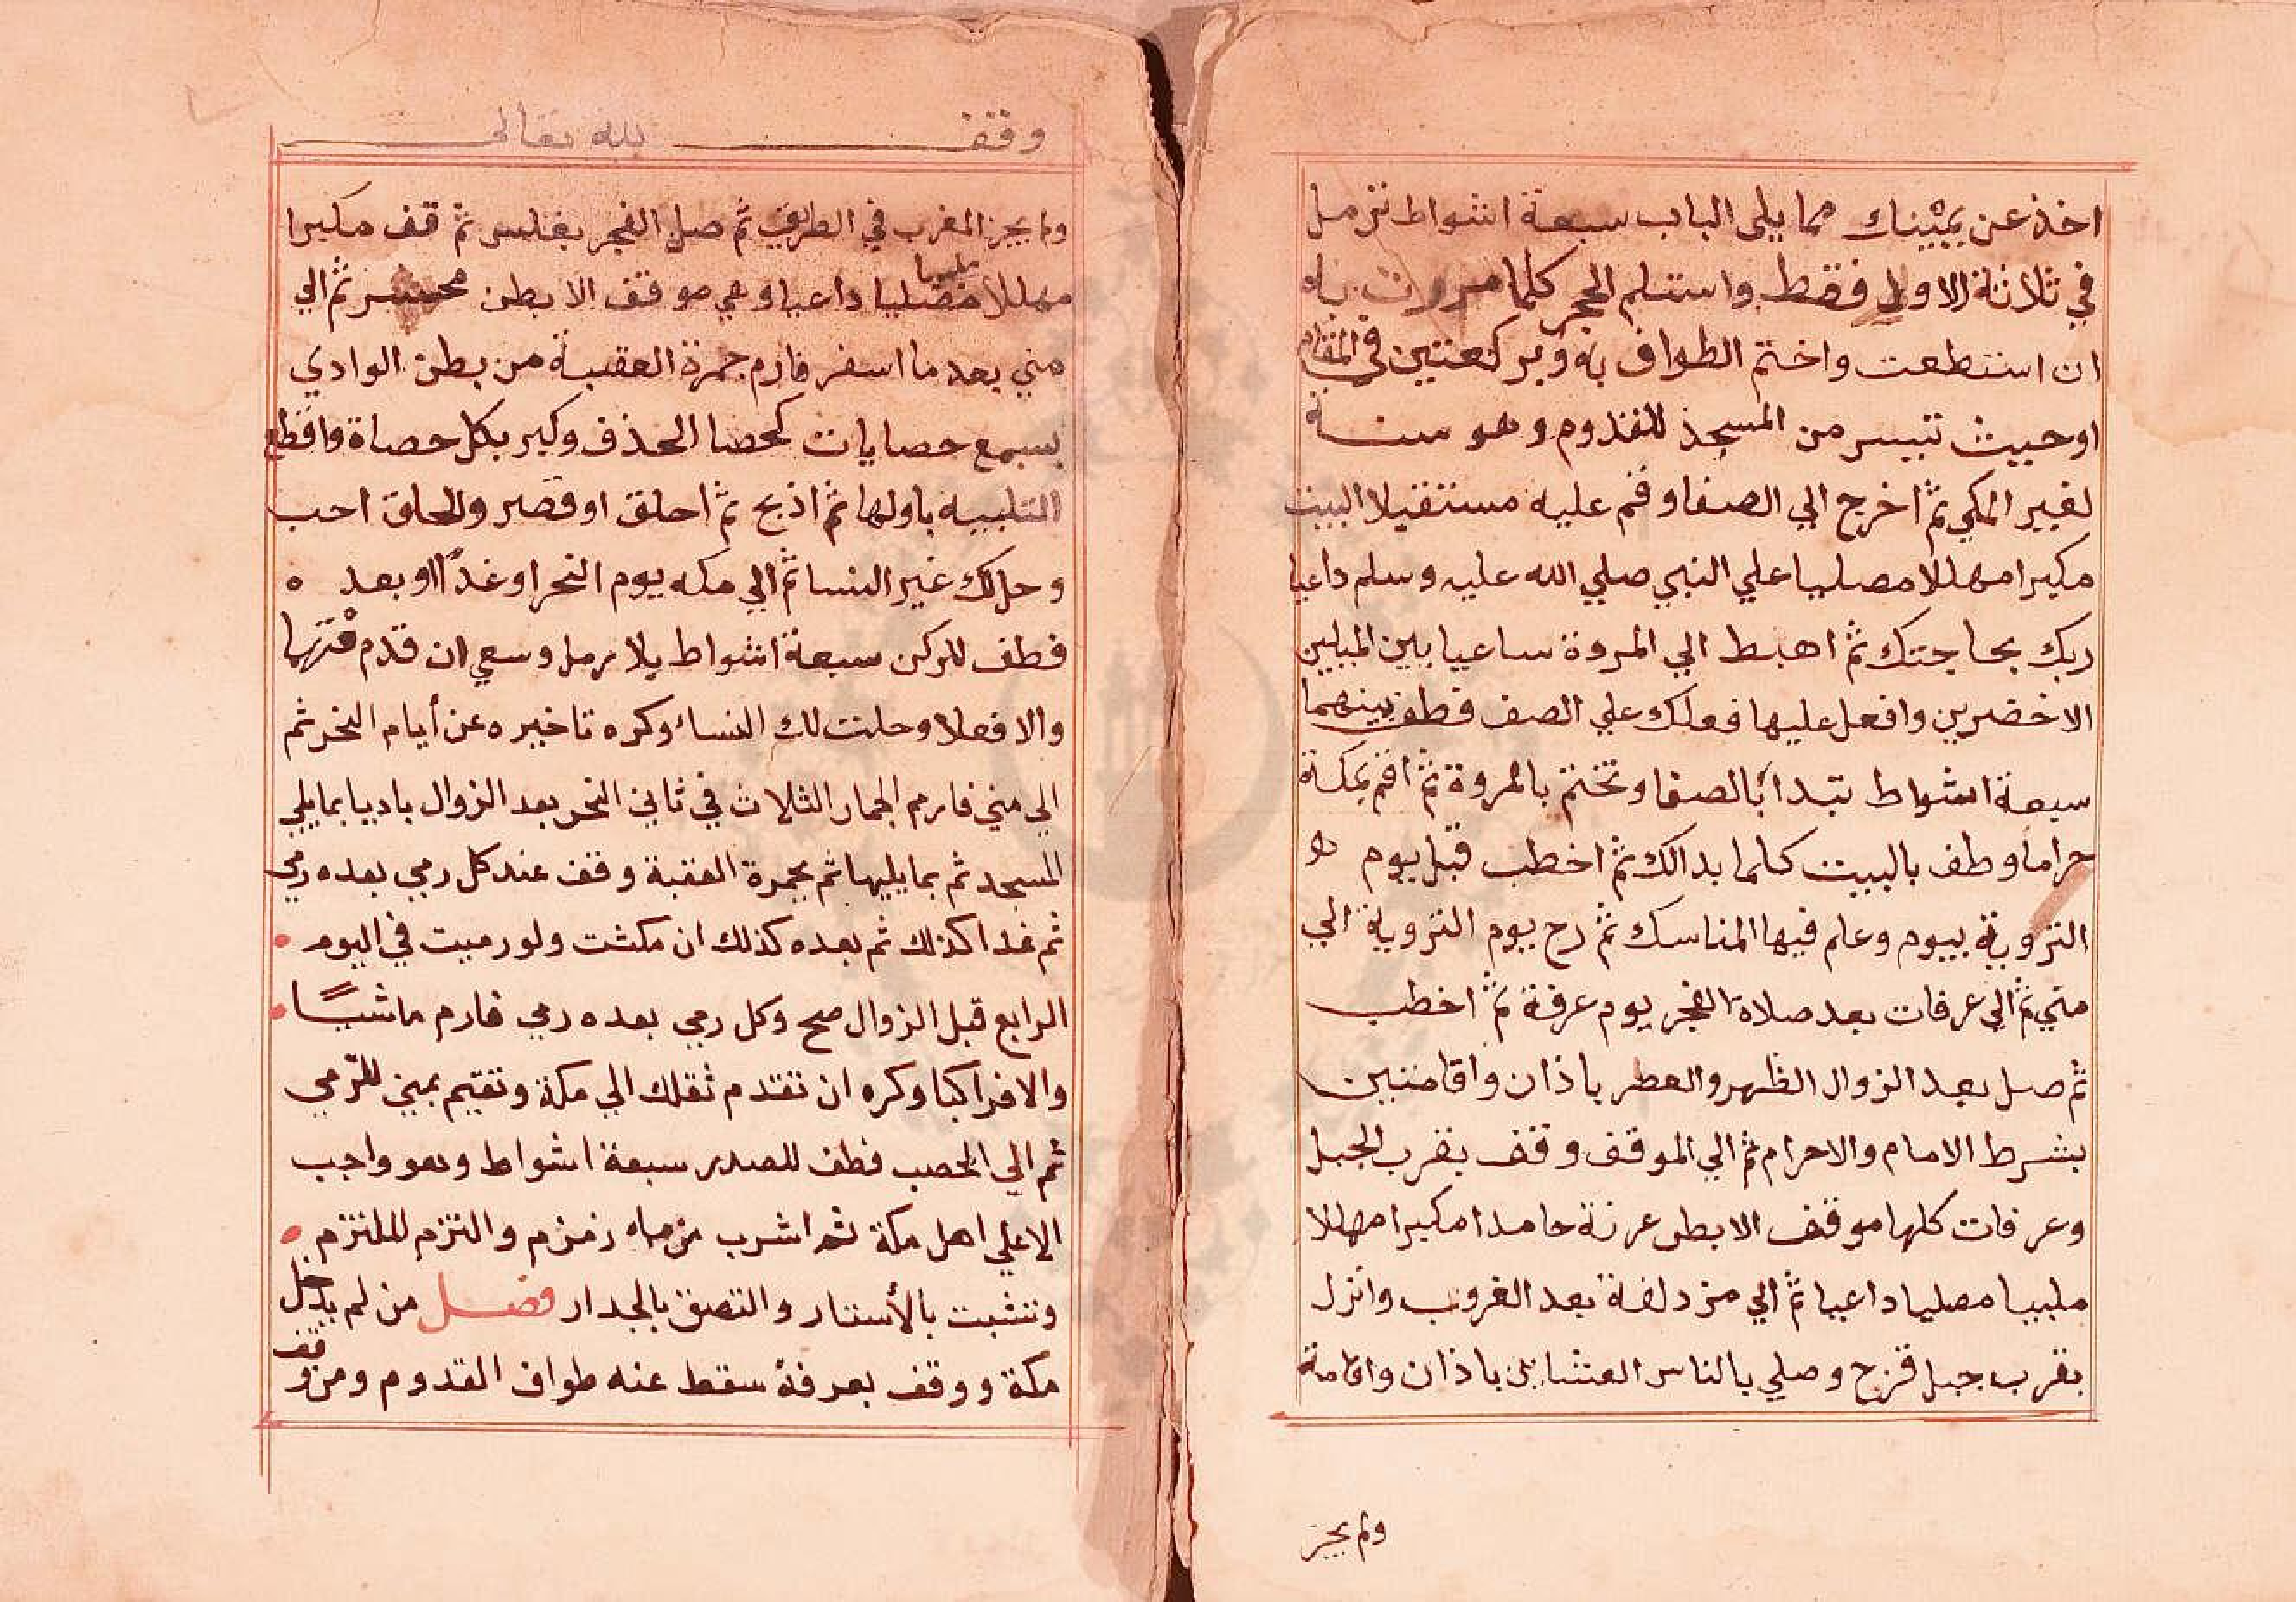 اخذ عن يمينك مما يلى الباب سبعة اشواط ترمل
في ثلاثة الاول فقط واستلم الحجر كلما مررت به
ان استطعت واختم الطواف به وبركعتين في المقام
اوحيث تيسر من المسجد للقدوم وهو سنة
لغير المكي ثم اخرج الي الصفا وقم عليه مستقبلا البيت
مكبرا مهللا مصليا علي النبي صلي الله عليه وسلم داعيا
ربك بحاجتك ثم اهبط الي المروة ساعيا بين الميلين
الاخضرين وافعل عليها فعلك علي الصف فطف بينهما
سبعة اشواط تبدا بالصفا وتختم بالمروة ثم اقم بمكة
حراما وطف بالبيت كلما بدالك ثم اخطب قبل يوم ه
التروية بيوم وعلم فيها المناسك ثم رح يوم التروية الي
مني ثم الي عرفات بعد صلاة الفجر يوم عرفة ثم اخطب
ثم صل بعد الزوال الظهر والعصر باذان واقامتين
بشرط الامام والاحرام ثم الي الموقف وقف بقرب الجبل
وعرفات كلها موقف الا بطن عرنة حامدا مكبرا مهللا
ملبيا مصليا داعيا ثم الي مزدلفة بعد الغروب وانزل
بقرب جبل قزح وصلي بالناس العشاين باذان واقامة
ولم يجز
وقف لله تعالى
ولم يجز المغرب في الطريق ثم صل الفجر بغلس ثم قف مكبرا
ملبيا
مهللا مصليا داعيا وهي موقف الا بطن محسر ثم الي
مني بعد ما اسفر فارم جمرة العقبة من بطن الوادي
بسبع حصايات كحصا الحذف وكبر بكل حصاة واقطع
التلبيه باولها ثم اذبح ثم احلق او قصر والحلق احب
وحل لك غير النسا ثم الي مكه يوم النحر او غدًا او بعد ه
فطف للركن سبعة اشواط بلا رمل وسعي ان قدمتهما
والا فعلا وحلت لك النساء وكره تاخيره عن أيام النحر ثم
الي مني فارم الجمار الثلاث في ثاني النحر بعد الزوال باديا بما يلي
المسجد ثم بما يليها ثم بجمرة العقبة وقف عند كل رمي بعده رمي
ثم غدا كذلك ثم بعده كذلك ان مكثت ولو رميت في اليوم
الرابع قبل الزوال صح وكل رمي بعده رمي فارم ماشيًا
والا فراكبا وكره ان تقدم ثقلك الي مكة وتقيم بمني للرمي
ثم الي المحصب فطف للصدر سبعة اشواط وهو واجب
الا علي اهل مكة ثم اشرب من ماء زمزم والتزم للملتزم
وتشبت بالأستار والتصق بالجدار فصل من لم يدخل
مكة ووقف بعرفة سقط عنه طواف القدوم ومن وقف